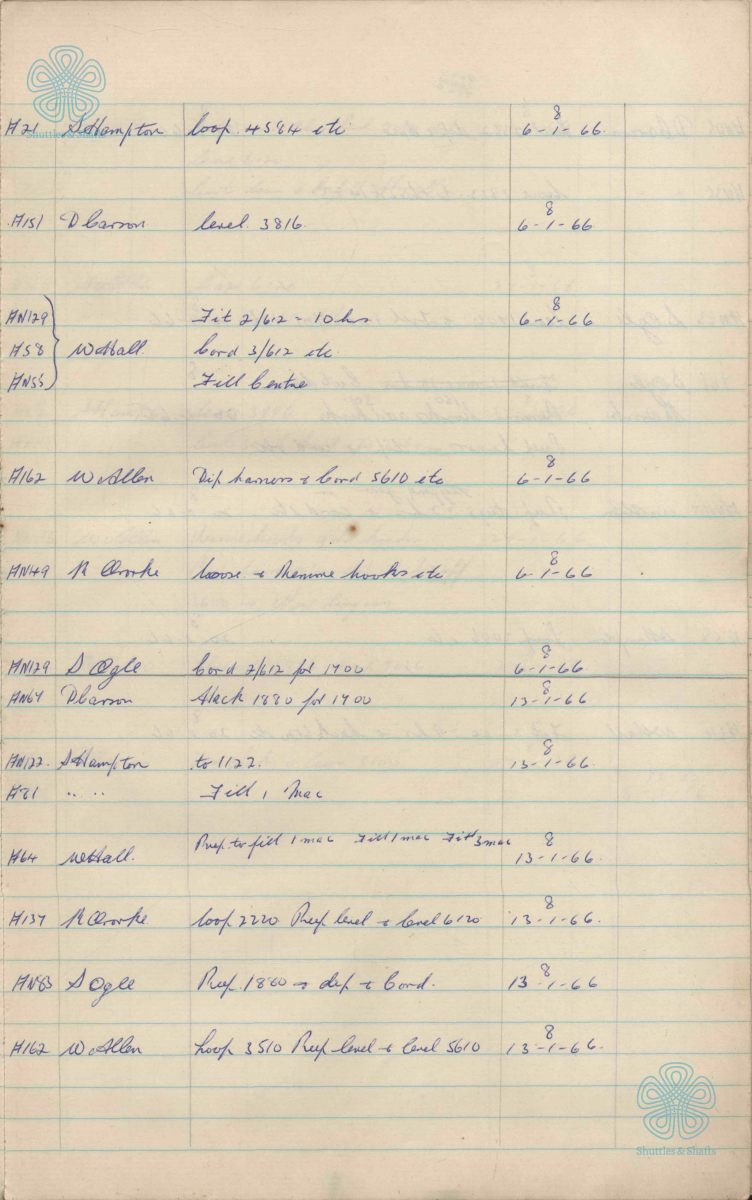 8
H21 S Hampton loop. 4584 etc 6-1-66.
8
H151 D Carson level 3816. 6-1-66.
8
HN129 Fit 2/612 = 10 hrs 6-1-66
H58 W Hall. Cord 3/612 etc.
HN55 Fill Centre
8
H162 W Allen Dip harness & Cord 5610 etc 6-1-66
8
HN49 R Ororke loose & Remove hooks etc 6-1-66
8
HN129 S Ogle Cord 2/612 for 1400 6-1-66
8
HN67 D Carson Slack 1880 for 1400 13-1-66
8
HN122. S Hampton to 1122. 13-1-66.
H81 " " Fill 1 Mac
Prep to fill 1 mac Fill 1 mac Fit 3 mac 8
H64 W Hall. 13-1-66.
8
H137 R Ororke loop 2220 Prep level & level 6120 13-1-66.
8
HN83 S Ogle Prep. 1880 & dip & Cord. 13-1-66
8
H162 W Allen Loop 3510 Prep level & level 5610 13-1-66.
Shuttles & Shafts